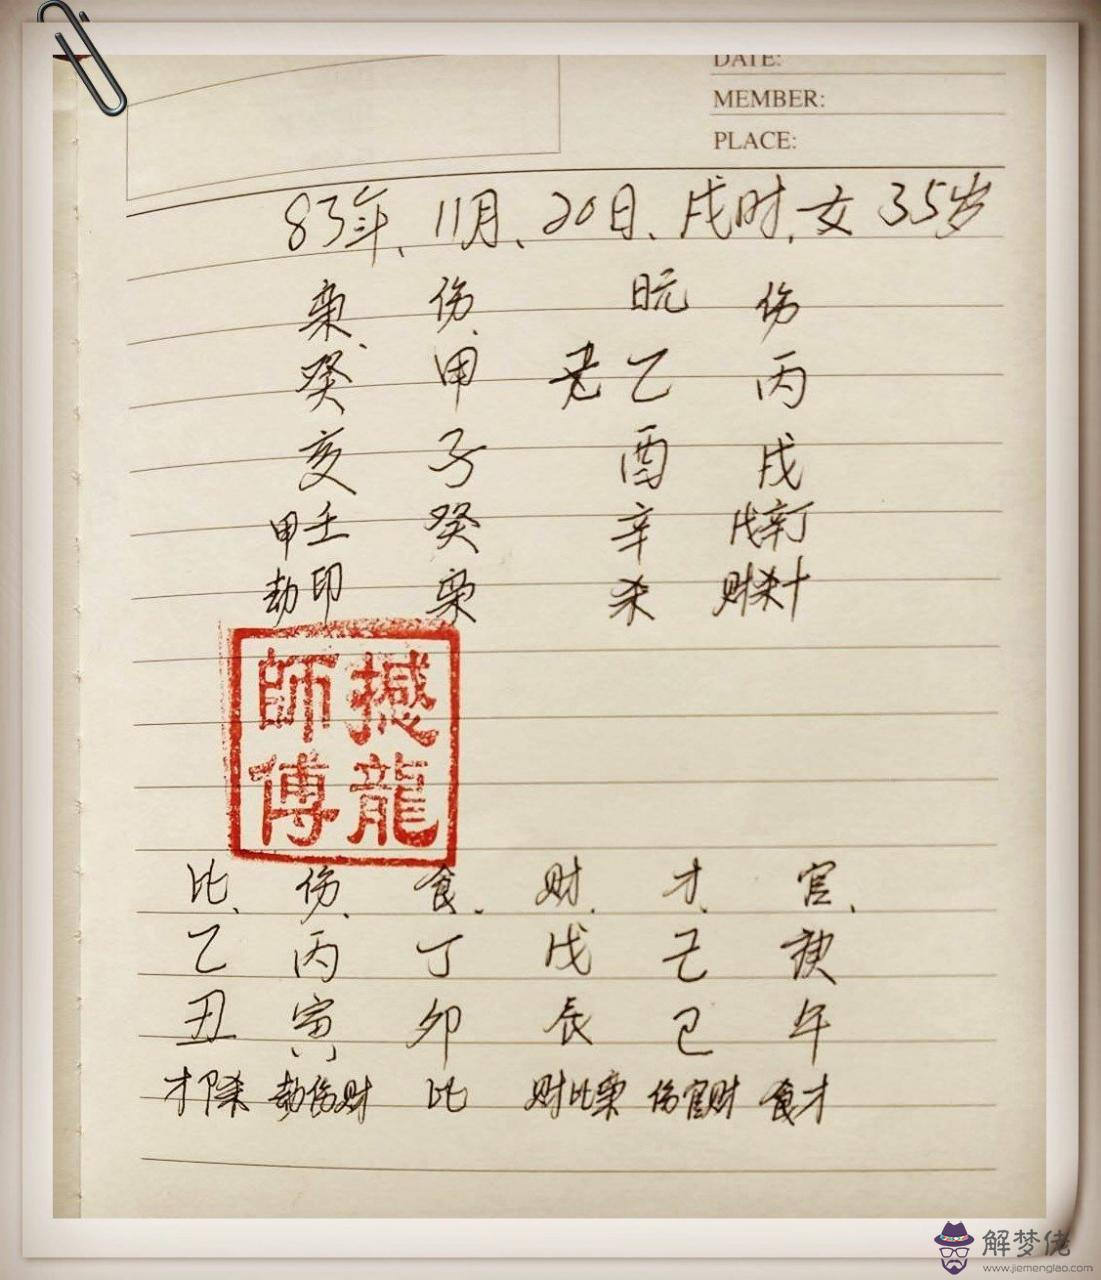 DATE:
MEMBER:
PLACE:
83年、11月、20日、戌时,女 35岁
枭、 伤、 日元 伤
癸 甲 乙 丙
亥 子 酉 戌
甲壬 癸 辛 戊辛丁
劫印 枭 杀 财杀
師撼
傅龍
比、 伤、 食、 财、 才、 官、
乙 丙 丁 戊 己 庚
丑 寅 卯 辰 巳 午
才 杀 劫伤财 比 财比枭 伤官财 食才
解梦佬
www.jiemenglao.com